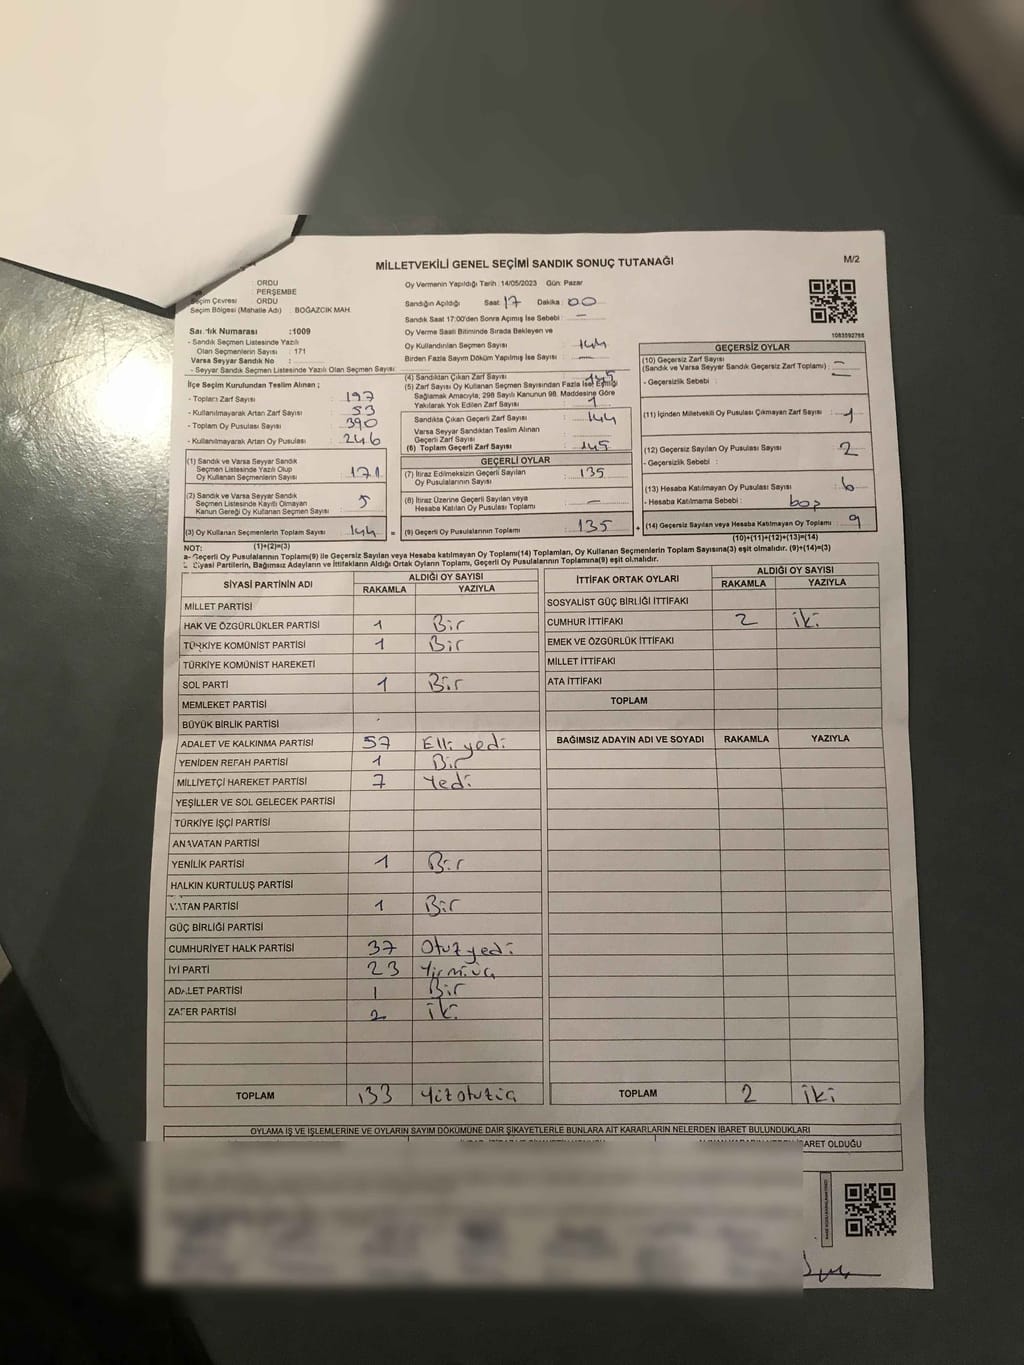 MİLLETVEKİLİ GENEL SEÇİMİ SANDIK SONUÇ TUTANAĞI
M/2
ORDU
PERŞEMBE
Seçim Çevresi : ORDU
Seçim Bölgesi (Mahalle Adı) : BOĞAZCIK MAH.
Sandık Numarası :1009
- Sandık Seçmen Listesinde Yazılı
Olan Seçmenlerin Sayısı : 171
Varsa Seyyar Sandık No :
- Seyyar Sandık Seçmen Listesinde Yazılı Olan Seçmen Sayısı:
İlçe Seçim Kurulundan Teslim Alınan ;
- Toplam Zarf Sayısı : 197
- Kullanılmayarak Artan Zarf Sayısı : 53
- Toplam Oy Pusulası Sayısı : 390
- Kullanılmayarak Artan Oy Pusulası : 246
(1) Sandık ve Varsa Seyyar Sandık
Seçmen Listesinde Yazılı Olup
Oy Kullanan Seçmenlerin Sayısı : 171
(2) Sandık ve Varsa Seyyar Sandık
Seçmen Listesinde Kayıtlı Olmayan
Kanun Gereği Oy Kullanan Seçmen Sayısı : 5
(3) Oy Kullanan Seçmenlerin Toplam Sayısı : 144
(1)+(2)=(3)
Oy Vermenin Yapıldığı Tarih :14/05/2023 Gün: Pazar
Sandığın Açıldığı Saat: 17 Dakika : 00
Sandık Saat 17:00'den Sonra Açılmış İse Sebebi : —
Oy Verme Saati Bitiminde Sırada Bekleyen ve
Oy Kullandırılan Seçmen Sayısı : 144
Birden Fazla Sayım Döküm Yapılmış İse Sayısı : —
(4) Sandıktan Çıkan Zarf Sayısı : 145
(5) Zarf Sayısı Oy Kullanan Seçmen Sayısından Fazla İse Eşitliği
Sağlamak Amacıyla, 298 Sayılı Kanunun 98. Maddesine Göre
Yakılarak Yok Edilen Zarf Sayısı : 1
Sandıkta Çıkan Geçerli Zarf Sayısı : 144
Varsa Seyyar Sandıktan Teslim Alınan
Geçerli Zarf Sayısı :
(6) Toplam Geçerli Zarf Sayısı : 145
GEÇERLİ OYLAR
(7) İtiraz Edilmeksizin Geçerli Sayılan
Oy Pusulalarının Sayısı : 135
(8) İtiraz Üzerine Geçerli Sayılan veya
Hesaba Katılan Oy Pusulası Toplamı : —
= (9) Geçerli Oy Pusulalarının Toplamı : 135 +
1083592798
GEÇERSİZ OYLAR
(10) Geçersiz Zarf Sayısı
(Sandık ve Varsa Seyyar Sandık Geçersiz Zarf Toplamı) : —
- Geçersizlik Sebebi : —
(11) İçinden Milletvekili Oy Pusulası Çıkmayan Zarf Sayısı : 1
(12) Geçersiz Sayılan Oy Pusulası Sayısı : 2
- Geçersizlik Sebebi :
(13) Hesaba Katılmayan Oy Pusulası Sayısı : 6
- Hesaba Katılmama Sebebi : boş
(14) Geçersiz Sayılan veya Hesaba Katılmayan Oy Toplamı : 9
(10)+(11)+(12)+(13)=(14)
NOT:
a- Geçerli Oy Pusulalarının Toplamı(9) ile Geçersiz Sayılan veya Hesaba katılmayan Oy Toplamı(14) Toplamları, Oy Kullanan Seçmenlerin Toplam Sayısına(3) eşit olmalıdır. (9)+(14)=(3)
Siyasi Partilerin, Bağımsız Adayların ve İttifakların Aldığı Ortak Oyların Toplamı, Geçerli Oy Pusulalarının Toplamına(9) eşit olmalıdır.
SİYASİ PARTİNİN ADI ALDIĞI OY SAYISI
RAKAMLA YAZIYLA
MİLLET PARTİSİ
HAK VE ÖZGÜRLÜKLER PARTİSİ 1 Bir
TÜRKİYE KOMÜNİST PARTİSİ 1 Bir
TÜRKİYE KOMÜNİST HAREKETİ
SOL PARTİ 1 Bir
MEMLEKET PARTİSİ
BÜYÜK BİRLİK PARTİSİ
ADALET VE KALKINMA PARTİSİ 57 Elli yedi
YENİDEN REFAH PARTİSİ 1 Bir
MİLLİYETÇİ HAREKET PARTİSİ 7 Yedi
YEŞİLLER VE SOL GELECEK PARTİSİ
TÜRKİYE İŞÇİ PARTİSİ
ANAVATAN PARTİSİ
YENİLİK PARTİSİ 1 Bir
HALKIN KURTULUŞ PARTİSİ
VATAN PARTİSİ 1 Bir
GÜÇ BİRLİĞİ PARTİSİ
CUMHURİYET HALK PARTİSİ 37 Otuz yedi
İYİ PARTİ 23 Yirmi üç
ADALET PARTİSİ 1 Bir
ZAFER PARTİSİ 2 iki
TOPLAM 133 Yüzotuzüç
İTTİFAK ORTAK OYLARI ALDIĞI OY SAYISI
RAKAMLA YAZIYLA
SOSYALİST GÜÇ BİRLİĞİ İTTİFAKI
CUMHUR İTTİFAKI 2 iki
EMEK VE ÖZGÜRLÜK İTTİFAKI
MİLLET İTTİFAKI
ATA İTTİFAKI
TOPLAM
BAĞIMSIZ ADAYIN ADI VE SOYADI RAKAMLA YAZIYLA
TOPLAM 2 iki
OYLAMA İŞ VE İŞLEMLERİNE VE OYLARIN SAYIM DÖKÜMÜNE DAİR ŞİKAYETLERLE BUNLARA AİT KARARLARIN NELERDEN İBARET BULUNDUKLARI
İBARET OLDUĞU